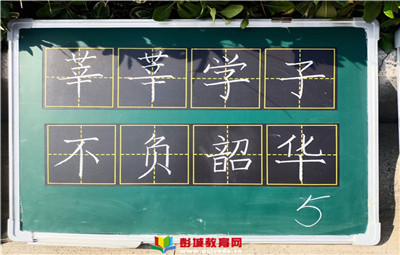 莘莘学子
不负韶华
5
彭城教育网